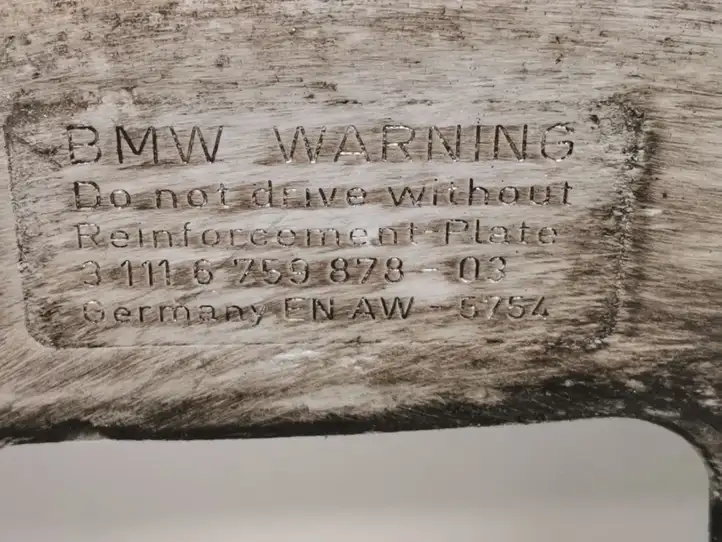 BMW WARNING
Do not drive without
Reinforcement-Plate
3 111 6 759 878-03
Germany EN AW-5754